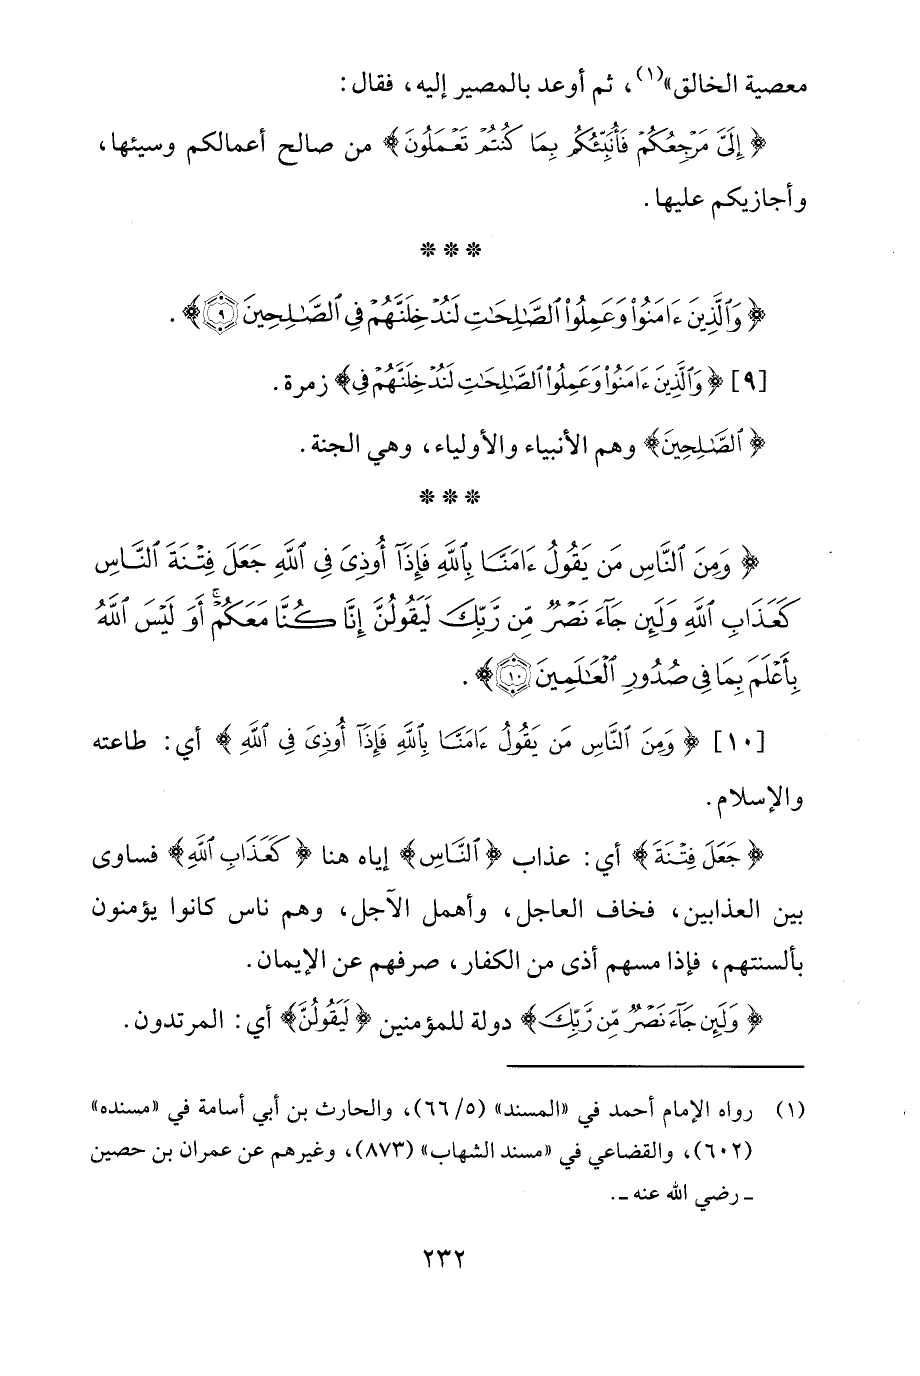 معصية الخالق»(١)، ثم أوعد بالمصير إليه، فقال:
﴿ إِلَيَّ مَرْجِعُكُمْ فَأُنَبِّئُكُم بِمَا كُنتُمْ تَعْمَلُونَ﴾ من صالح أعمالكم وسيئها،
وأجازيكم عليها.
* * *
﴿ وَٱلَّذِينَ ءَامَنُوا۟ وَعَمِلُوا۟ ٱلصَّـٰلِحَـٰتِ لَنُدْخِلَنَّهُمْ فِى ٱلصَّـٰلِحِينَ ٩﴾ .
[٩] ﴿ وَٱلَّذِينَ ءَامَنُوا۟ وَعَمِلُوا۟ ٱلصَّـٰلِحَـٰتِ لَنُدْخِلَنَّهُمْ فِى﴾ زمرة.
﴿ ٱلصَّـٰلِحِينَ﴾ وهم الأنبياء والأولياء، وهي الجنة.
* * *
﴿ وَمِنَ ٱلنَّاسِ مَن يَقُولُ ءَامَنَّا بِٱللَّهِ فَإِذَآ أُوذِىَ فِى ٱللَّهِ جَعَلَ فِتْنَةَ ٱلنَّاسِ
كَعَذَابِ ٱللَّهِ وَلَئِن جَآءَ نَصْرٌ مِّن رَّبِّكَ لَيَقُولُنَّ إِنَّا كُنَّا مَعَكُمْ ۚ أَوَ لَيْسَ ٱللَّهُ
بِأَعْلَمَ بِمَا فِى صُدُورِ ٱلْعَـٰلَمِينَ ١٠﴾ .
[١٠] ﴿ وَمِنَ ٱلنَّاسِ مَن يَقُولُ ءَامَنَّا بِٱللَّهِ فَإِذَآ أُوذِىَ فِى ٱللَّهِ ﴾ أي: طاعته
والإسلام.
﴿ جَعَلَ فِتْنَةَ ﴾ أي: عذاب ﴿ ٱلنَّاسِ﴾ إياه هنا ﴿ كَعَذَابِ ٱللَّهِ﴾ فساوى
بين العذابين، فخاف العاجل، وأهمل الآجل، وهم ناس كانوا يؤمنون
بألسنتهم، فإذا مسهم أذى من الكفار، صرفهم عن الإيمان.
﴿ وَلَئِن جَآءَ نَصْرٌ مِّن رَّبِّكَ﴾ دولة للمؤمنين ﴿ لَيَقُولُنَّ﴾ أي: المرتدون.
(١) رواه الإمام أحمد في «المسند» (٥/ ٦٦)، والحارث بن أبي أسامة في «مسنده»
(٦٠٢)، والقضاعي في «مسند الشهاب» (٨٧٣)، وغيرهم عن عمران بن حصين
ـ رضي الله عنه ـ.
٢٣٢